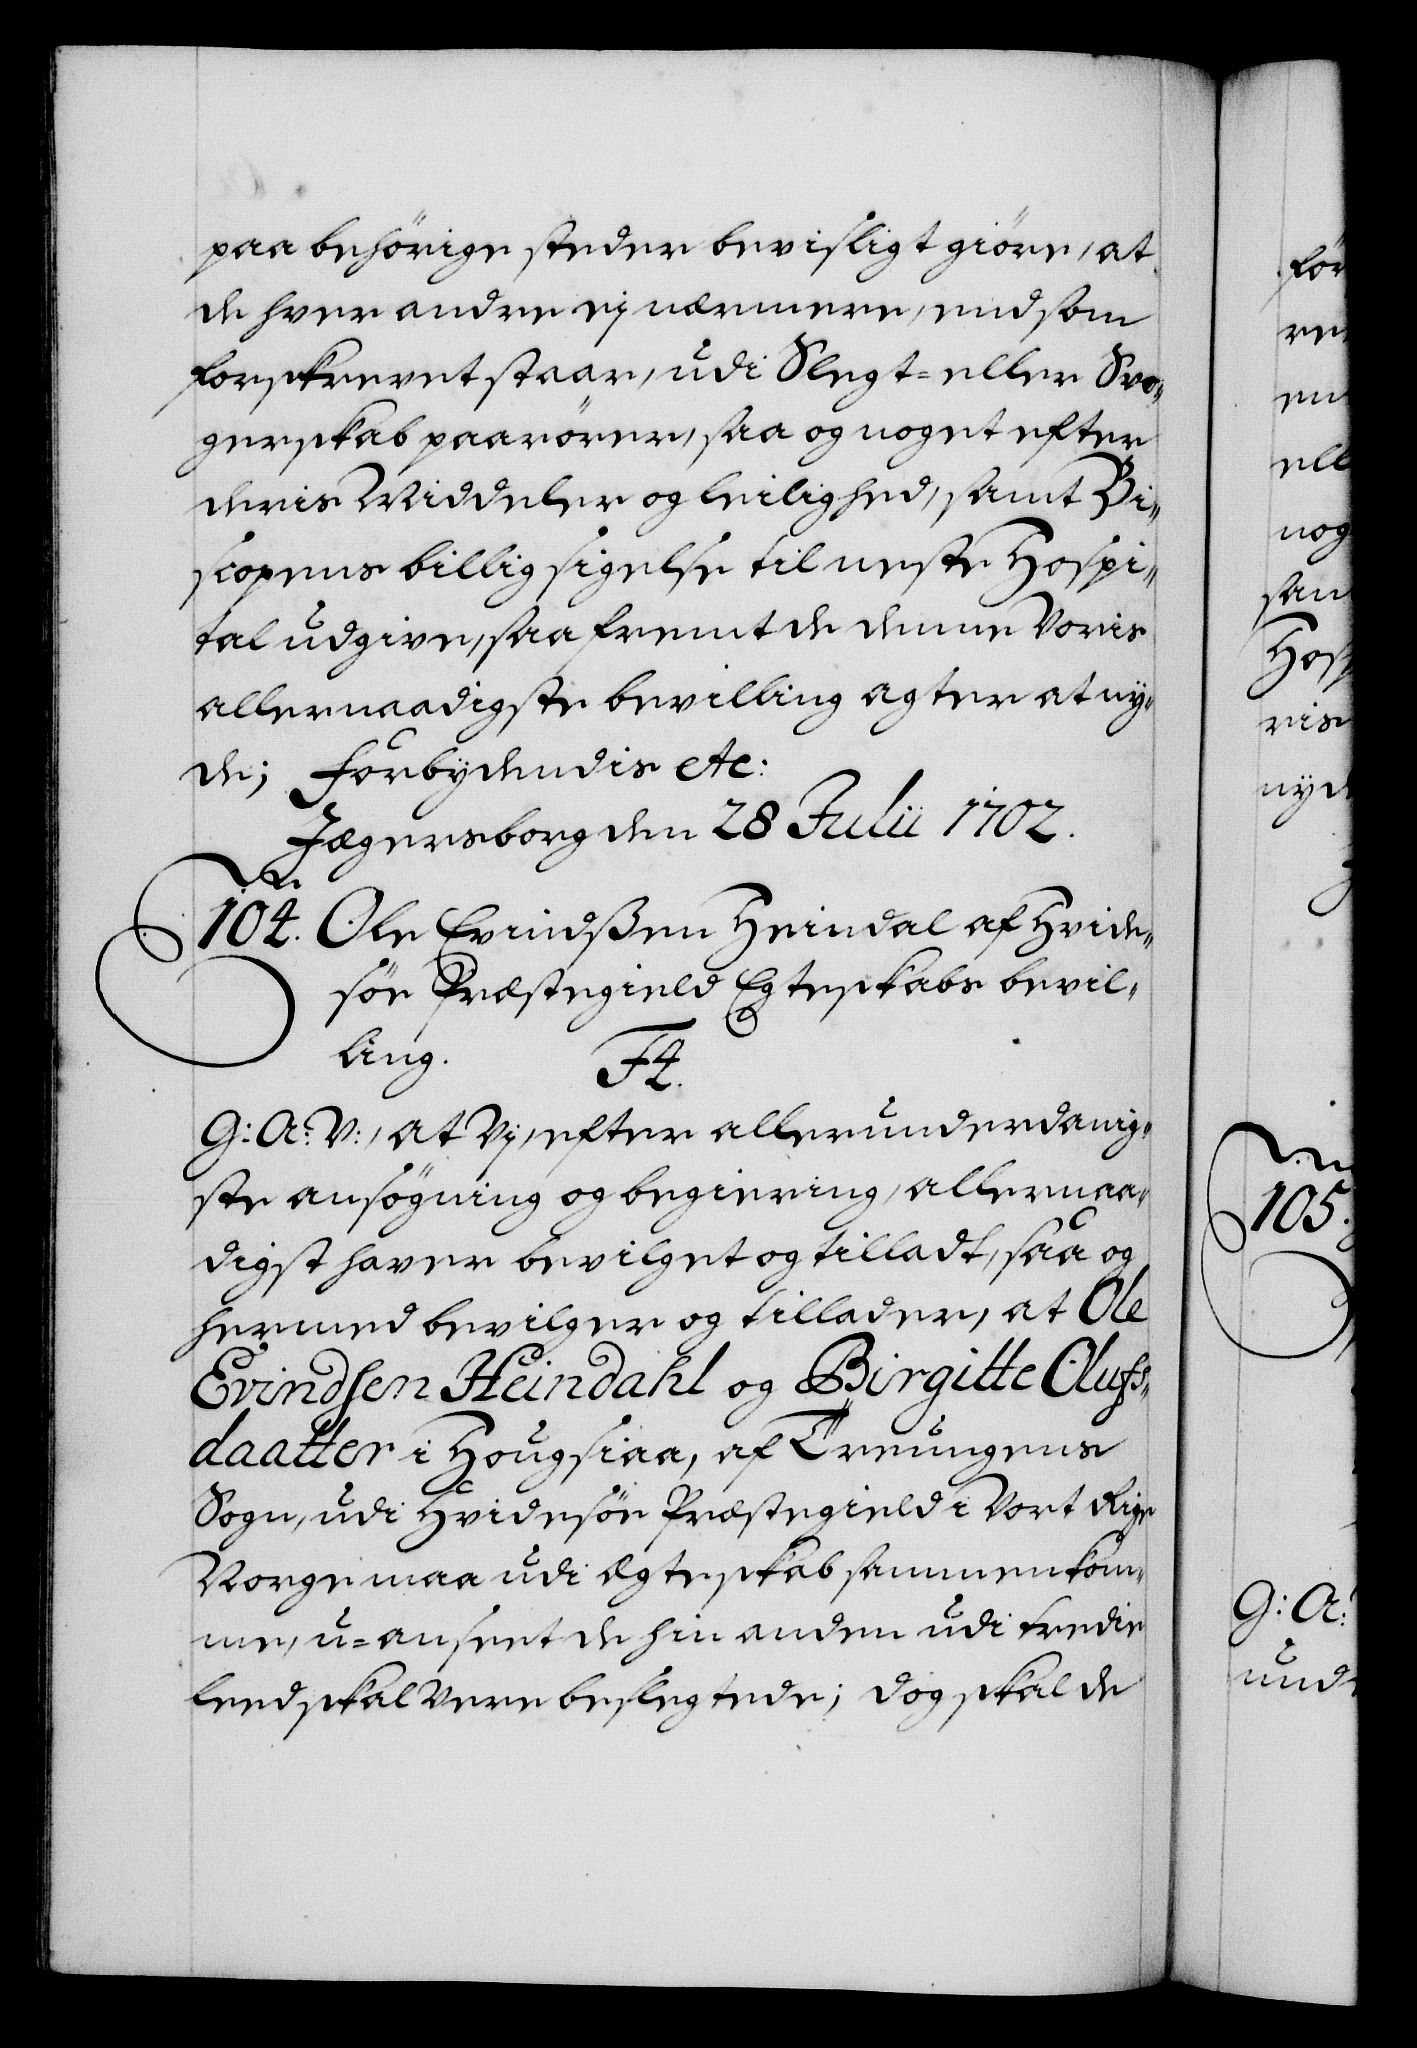 paa behörige steder bevisligt giöre, at
de hver andre ej nærmere, end som
forskrevet staar, udi Slegt= eller Svo„
gerskab paarörer, saa og noget efter
deris Middeler og leilighed, samt Bi„
scopens billig sigelse til neste Hospi„
tal udgive, saa fremt de denne Voris
allernaadigste bevilling agter at ny„
de; Forbydendis etc:
Jægersborg den 28 Julii 1702.
104. Ole Evindßen Heindal af Hvide„
söe Præstegield Egteskabs bevil„
ling. F4.
G: A: V:, at Vj, efter allerunderdanig„
ste ansögning og begiering, allernaa„
digst haver bevilget og tilladt, saa og
hermed bevilger og tillader, at Ole
Evindsen Heindahl og Birgitte Olufs„
daatter i Hougsiaa, af Treungens
Sogn, udi Hvidesöe Præstegield i Vort Rige
Norge maa udi Egteskab sammenkom„
me, u=anseet de hin anden udi tredie
leed skal være beslegtede; dog skal de
för
re
en
ell
nog
sam
Hosp
ris
nyd
105.
G: A:
und